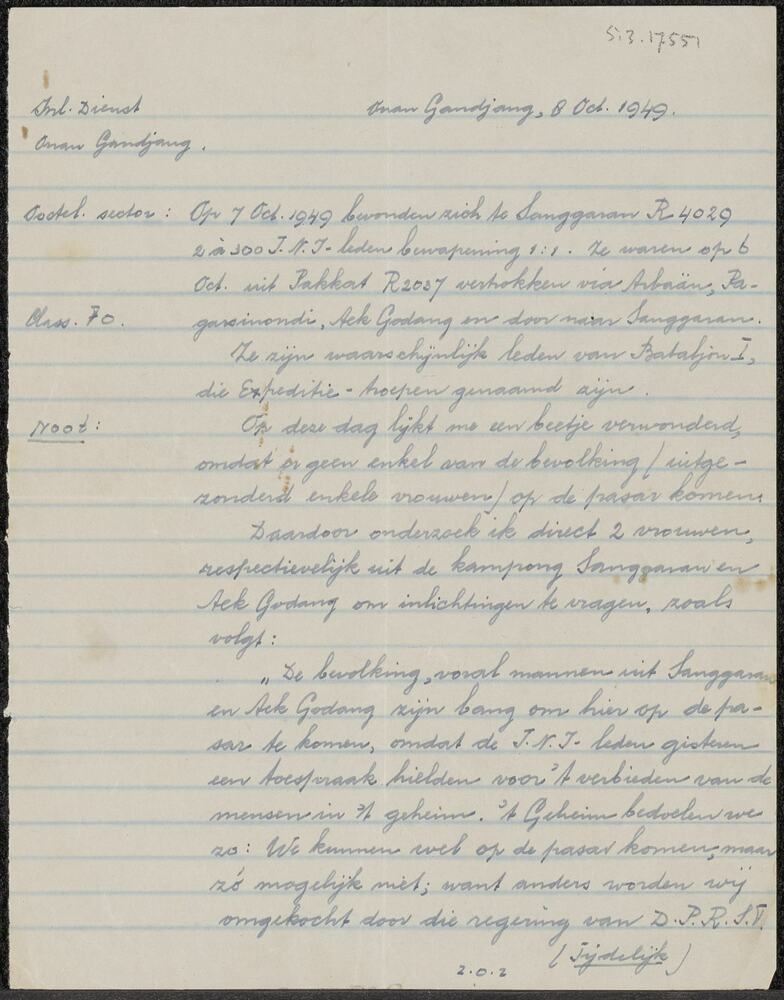 5.3.17551
Inl. Dienst
Onan Gandjang, 8 Oct. 1949.
Onan Gandjang.
Oostel. sector: Op 7 Oct. 1949 bevonden zich te Sanggaran R 4029
2 à 300 T.N.I-leden bewapening 1:1. Ze waren op 6
Oct. uit Pakkat R2037 vertrokken via Arbaän, Pa-
Class. F0. garsinondi, Aek Godang en door naar Sanggaran.
Ze zijn waarschijnlijk leden van Bataljon I,
die Expeditie-troepen genaamd zijn.
Noot: Op deze dag lijkt me een beetje verwonderd,
omdat er geen enkel van de bevolking (uitge-
zonderd enkele vrouwen) op de pasar komen.
Daardoor onderzoek ik direct 2 vrouwen,
respectievelijk uit de kampong Sanggaran en
Aek Godang om inlichtingen te vragen, zoals
volgt:
„De bevolking, voral mannen uit Sanggaran
en Aek Godang zijn bang om hier op de pa-
sar te komen, omdat de T.N.I-leden gisteren
een toespraak hielden voor 't verbieden van de
mensen in 't geheim. 't Geheim bedoelen we
zo: We kunnen wel op de pasar komen, maar
zó mogelijk niet; want anders worden wij
omgekocht door die regering van D.P.R.S.T.
(Tijdelijk)
z.o.z